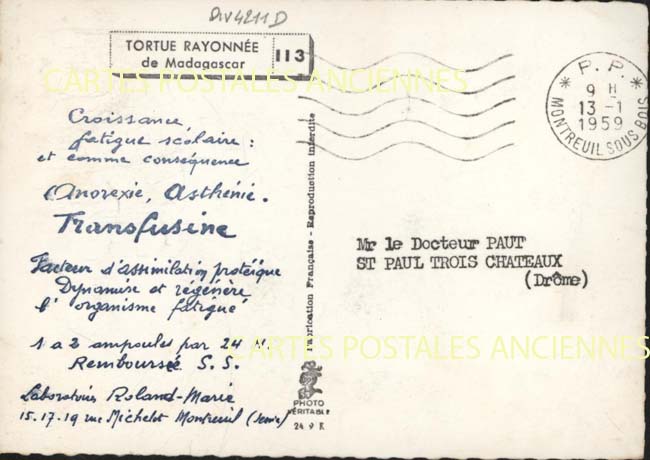 DIV4211D
TORTUE RAYONNÉE
de Madagascar
113
CARTES POSTALES ANCIENNES
* P.P. *
9 H
13 -1
1959
MONTREUIL SOUS BOIS
Croissance,
fatigue scolaire :
et comme conséquence
l'Anorexie, Asthénie.
Transfusine
Facteur d'assimilation protéïque
Dynamise et régénère
l'organisme fatigué
1 à 2 ampoules par 24 H.
Remboursée S.S.
Laboratoires Roland-Marie
15.17.19 rue Michelet Montreuil (Seine)
Fabrication Française - Reproduction interdite
PHOTO
VÉRITABLE
Mr le Docteur PAUT
ST PAUL TROIS CHATEAUX
(Drôme)
CARTES POSTALES ANCIENNES